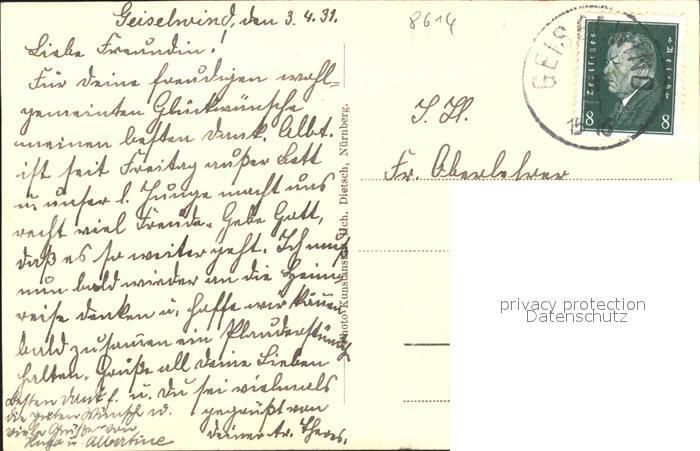 Geiselwind, den 3.4.31.
Liebe Freundin!
Für deine freudigen wohl-
gemeinten Glückwünsche
meinen besten Dank. Albt.
ist seit Freitag außer Bett
u. unser l. Junge macht uns
recht viel Freude. Gebe Gott,
daß es so weiter geht. Ich muß
nun bald wieder an die Heim-
reise denken u. hoffe wir können
bald zusammen ein Plauderstündch
halten. Grüße all deine Lieben
u. Du sei vielmals
gegrüßt von
deiner tr. Theres.
Besten Dank f.
die guten Wünsche u.
viele Grüße von
Hugo u. Albertine
Photo-Kunstanstalt Hch. Dietsch, Nürnberg.
8614
GEISELWIND
15-16
Deutsches Reich
8 8
S. Hl.
Fr. Oberlehrer
privacy protection
Datenschutz